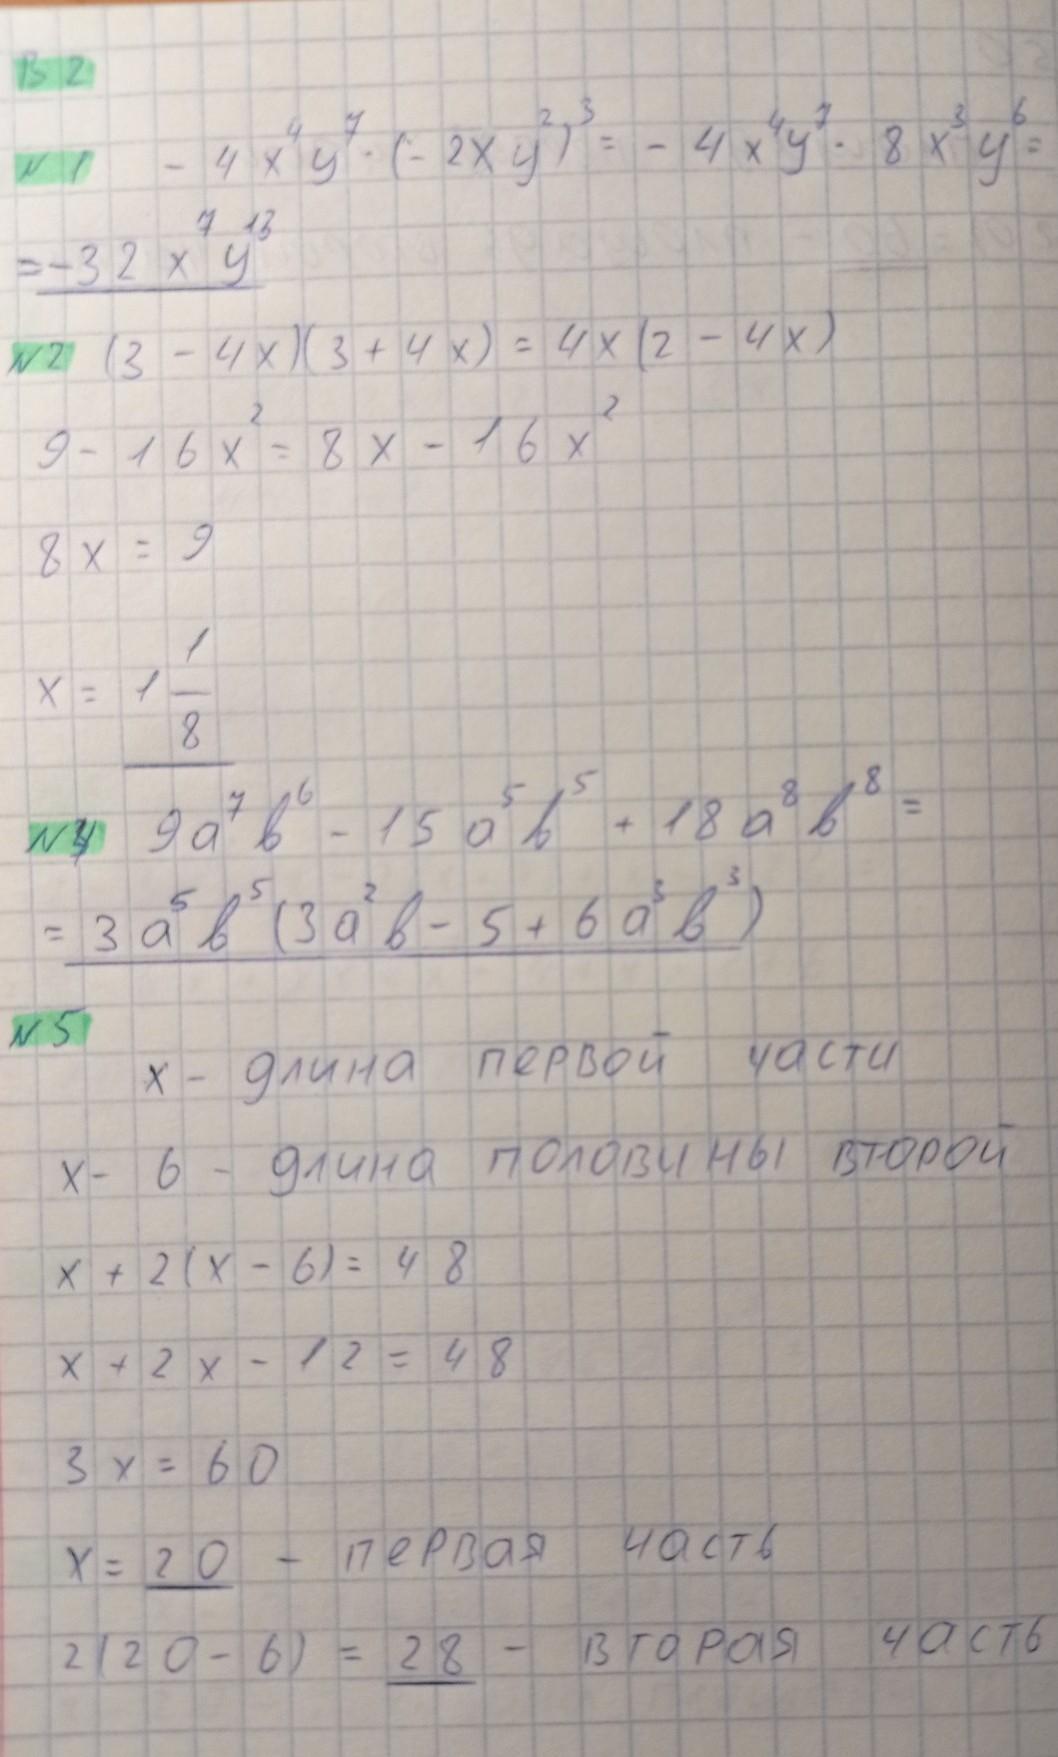 В 2
№1 - 4x⁴y⁷ · (- 2xy²)³ = - 4x⁴y⁷ · 8x³y⁶ =
= -32x⁷y¹³
№2 (3 - 4x)(3 + 4x) = 4x(2 - 4x)
9 - 16x² = 8x - 16x²
8x = 9
x = 1 1/8
№4 9a⁷b⁶ - 15a⁵b⁵ + 18a⁸b⁸ =
= 3a⁵b⁵(3a²b - 5 + 6a³b³)
№5
x - длина первой части
x - 6 - длина половины второй
x + 2(x - 6) = 48
x + 2x - 12 = 48
3x = 60
x = 20 - первая часть
2(20 - 6) = 28 - вторая часть